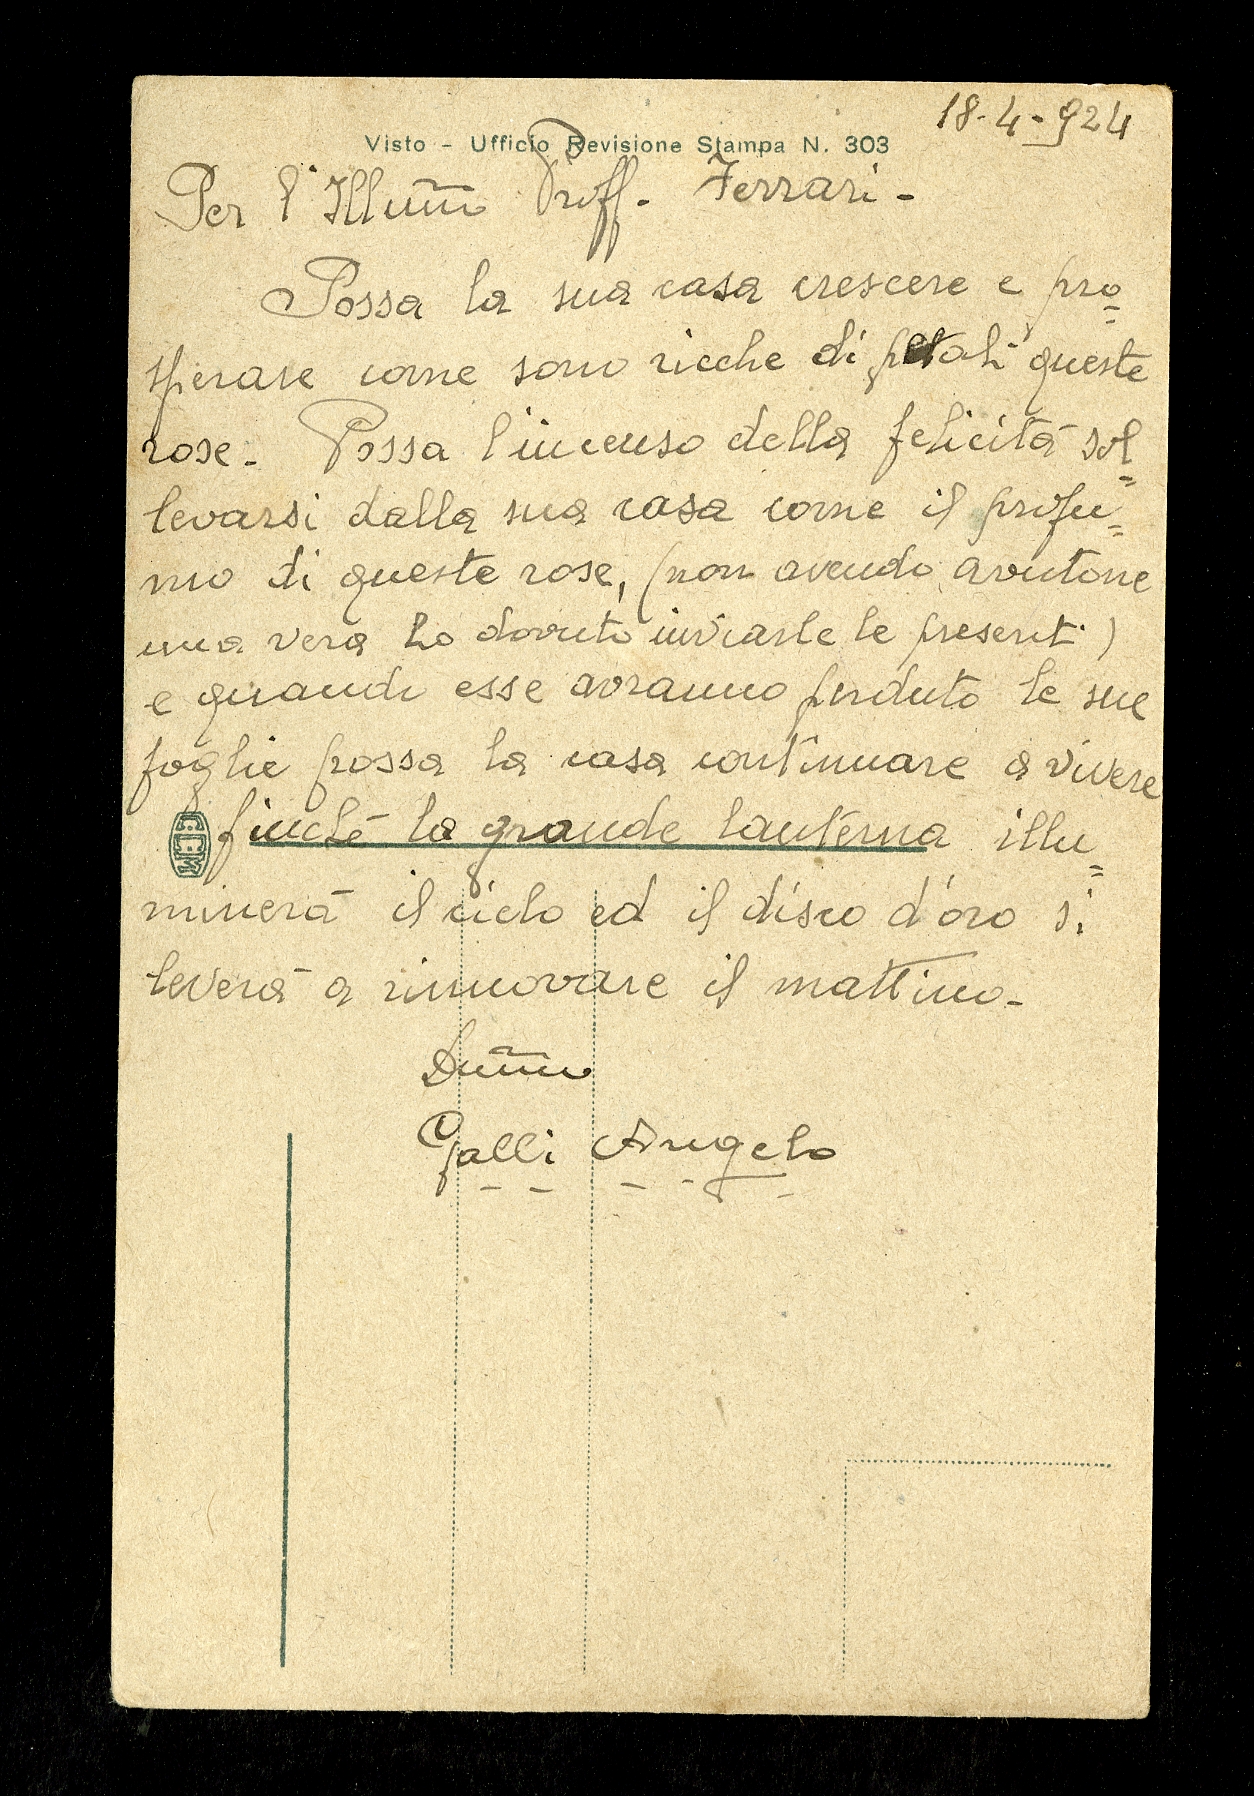 18-4-924
Visto - Ufficio Revisione Stampa N. 303
Per l'Illum̃o Proff. Ferrari -
Possa la sua casa crescere e pro=
sperare come sono ricche di petali queste
rose - Possa l'incenso della felicità sol=
levarsi dalla sua casa come il profu=
mo di queste rose, (non avendo avutone
una vera ho dovuto inviarle le presenti)
e quando esse avranno perduto le sue
foglie possa la casa continuare a vivere
CCM
finchè la grande lanterna illu=
minerà il cielo ed il disco d'oro si
leverà a rinnovare il mattino -
Dum̃o
Galli Angelo